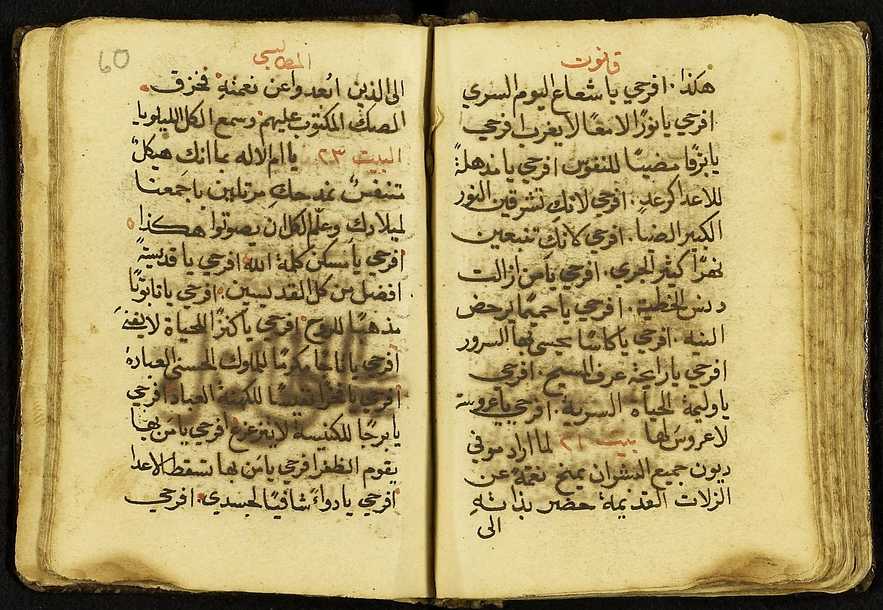 قانون
هكذا . افرحي يا شعاع اليوم السري
افرحي يا نورًا لامعًا لا يغرب افرحي
يا برقًا مضيئًا للنفوس افرحي يا مذهلةً
للاعدا كرعدٍ . افرحي لانك تشرقين النور
الكبير الضيا . افرحي لانكِ تنبعين
نهرًا كثير الجري . افرحي يا من ازالت
دنس الخطية . افرحي يا حميمًا يرحض
النيه . افرحي يا كاسًا يحسى بها السرور
افرحي يا رايحة عرف المسيح . افرحي
يا وليمة الحياه السرية . افرحي يا عروسة
لا عروس لها بيت ٢٢ لما اراد موفي
ديون جميع البشر ان يمنح نعمةً عن
الزلات القديمة حضر بذاته
الى
60
الى الذين ابعدوا عن نعمته فخزق
الصك المكتوب عليهم وسمع الكل الليلويا
البيت ٢٣ يا ام الاله بما انك هيكل
متنفس نمدحكِ مرتلين باجمعنا
لميلادكِ وعلّم الكل ان يصوتوا هكذا
افرحي يا مسكن كلمة الله افرحي يا قديسةً
افضل من كل القديسين . افرحي يا تابوتًا
مذهبًا للروح افرحي يا كنزًا للحياة لا يفنى
افرحي يا تاجًا مكرمًا للملوك الحسني العبادة
افرحي يا فخرًا نفيسًا للكهنة العباد افرحي
يا برجًا للكنيسة لا يتزعزع افرحي يا من بها
يقوم الظفر افرحي يا من بها تسقط الاعدا
افرحي يا دواءً شافيًا لجسدي . افرحي